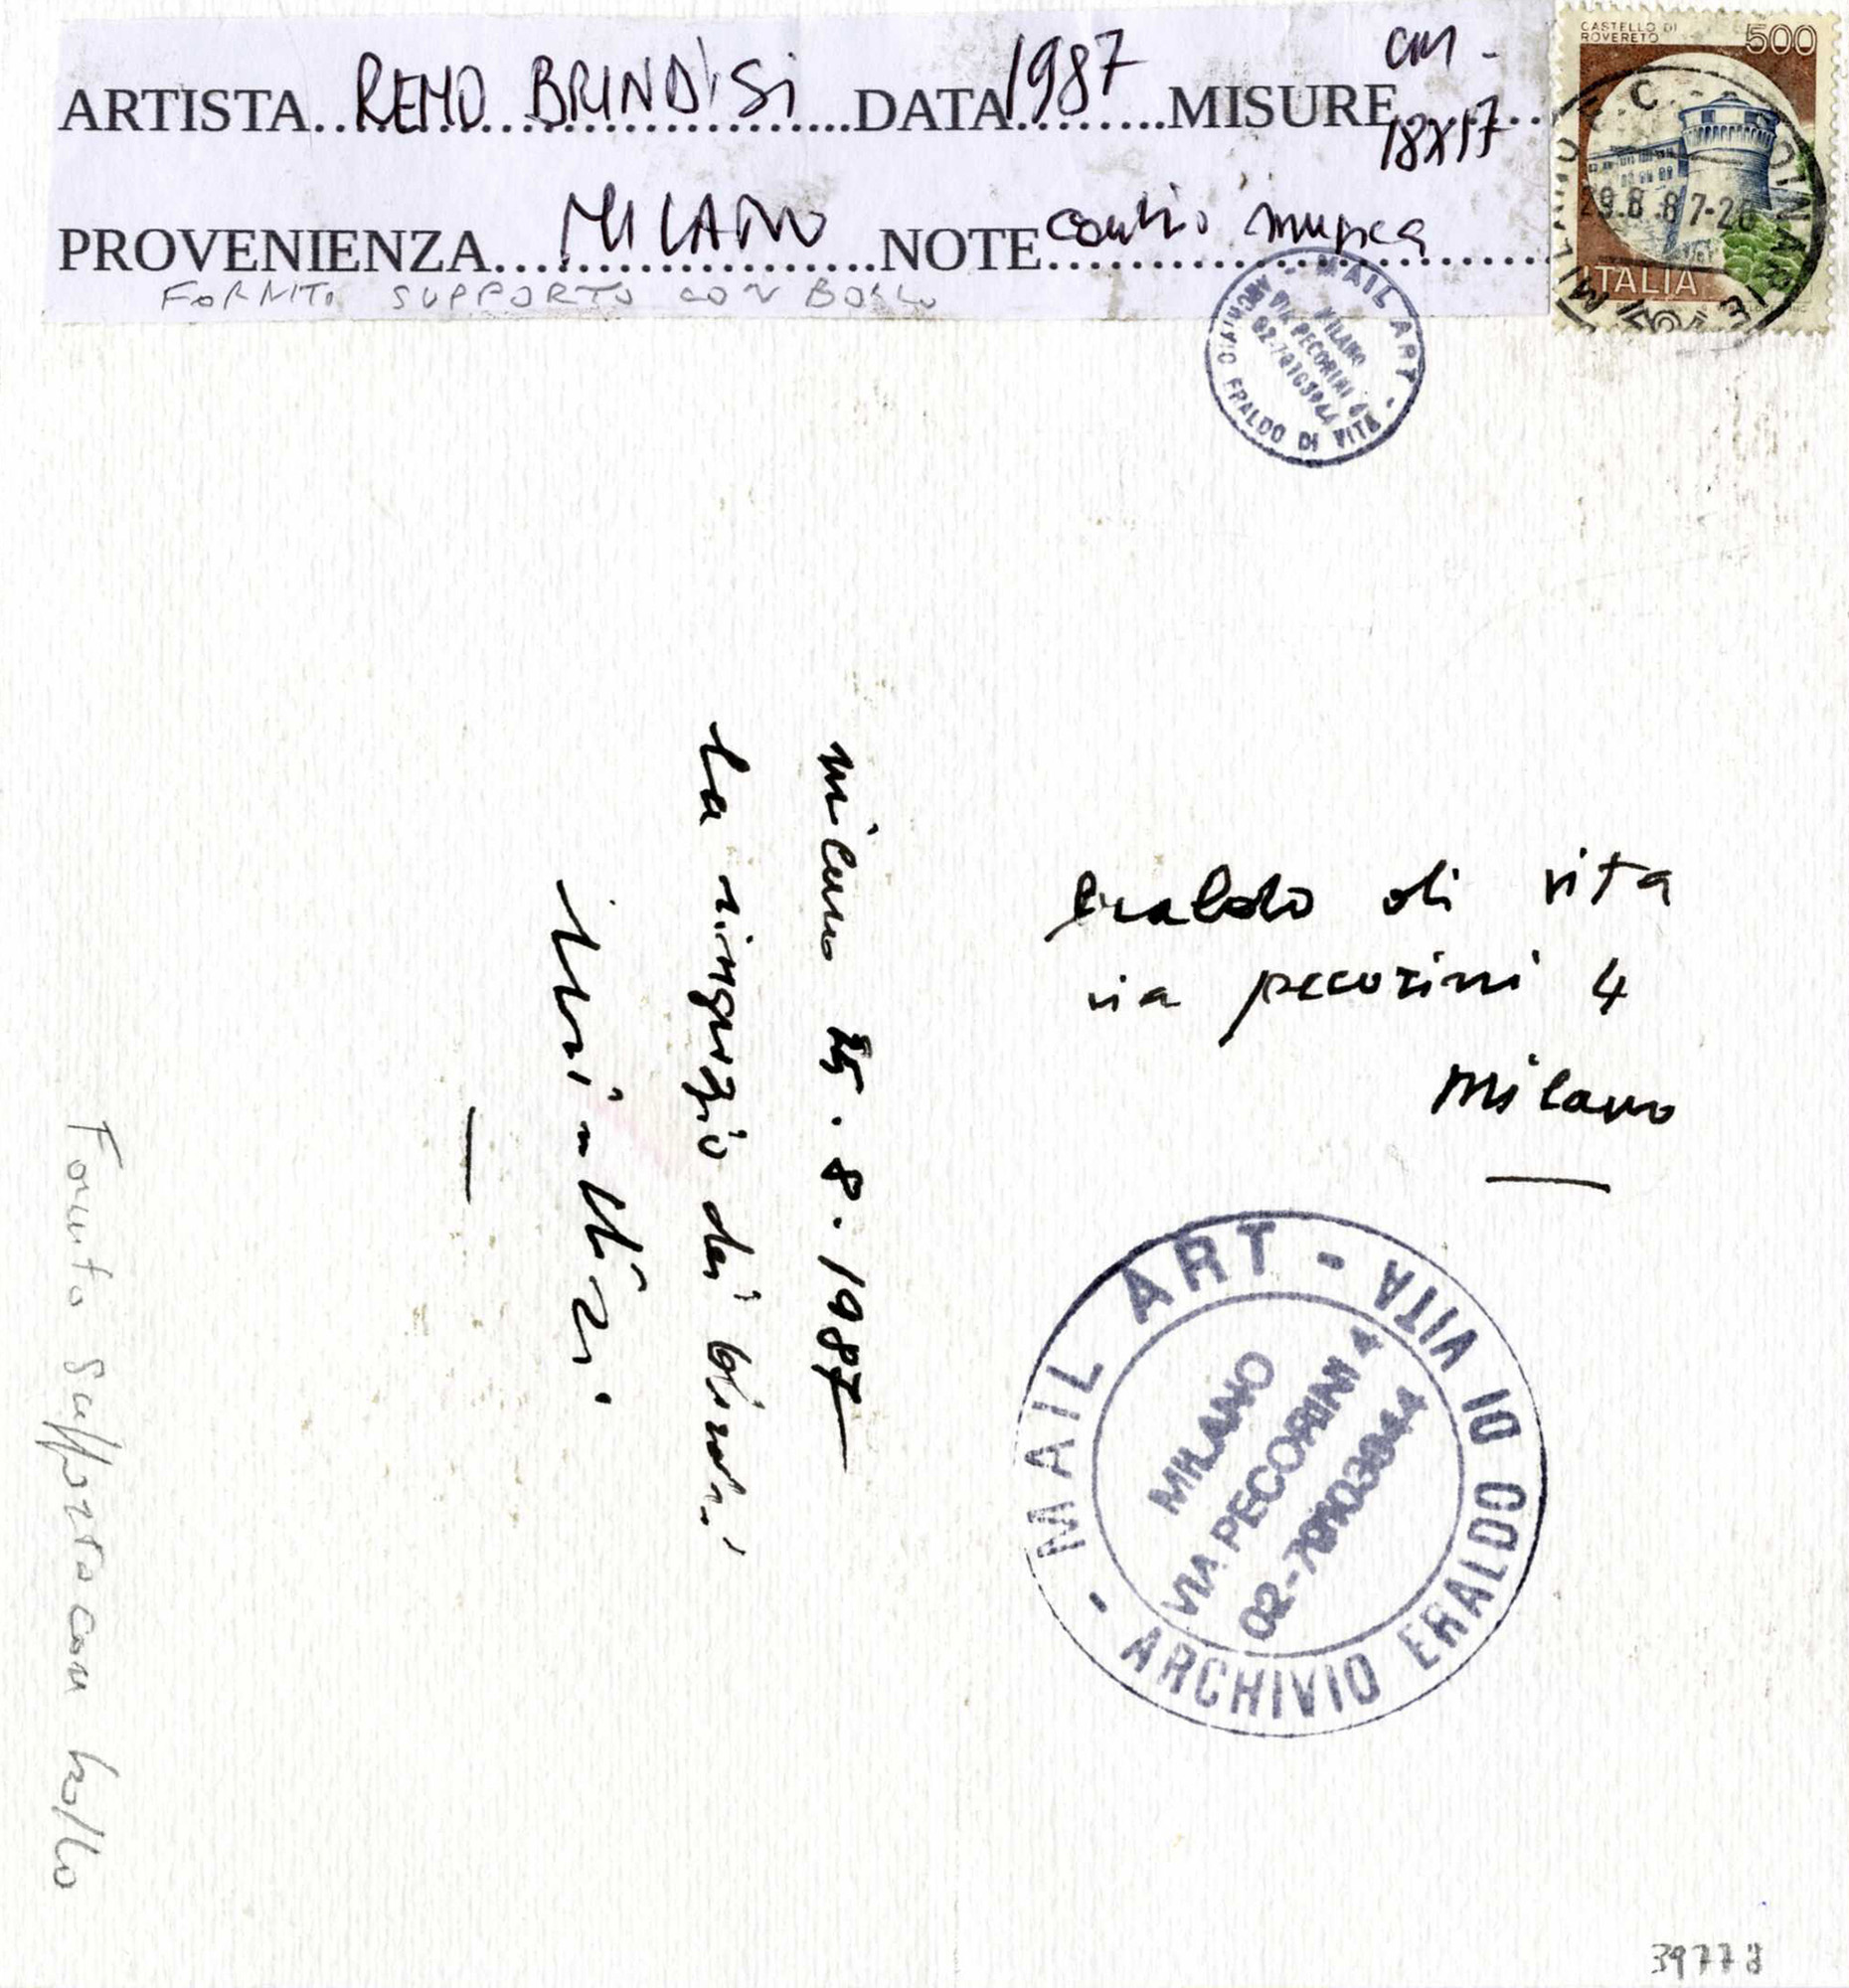 ARTISTA REMO BRINDISI DATA 1987 MISURE cm - 18X17
PROVENIENZA MILANO NOTE musica
FORNITO SUPPORTO CON BOLLO
CASTELLO DI ROVERETO
500
ITALIA
29.8.87-20
MILANO
ORDINARIE
MAIL ART - ARCHIVIO ERALDO DI VITA
MILANO
VIA PECORINI 4
milano 25.8.1987
la ringrazio dei
eraldo di vita
via pecorini 4
milano
- MAIL ART - ARCHIVIO ERALDO DI VITA
MILANO
VIA PECORINI 4
Fornito supporto con bollo
39778